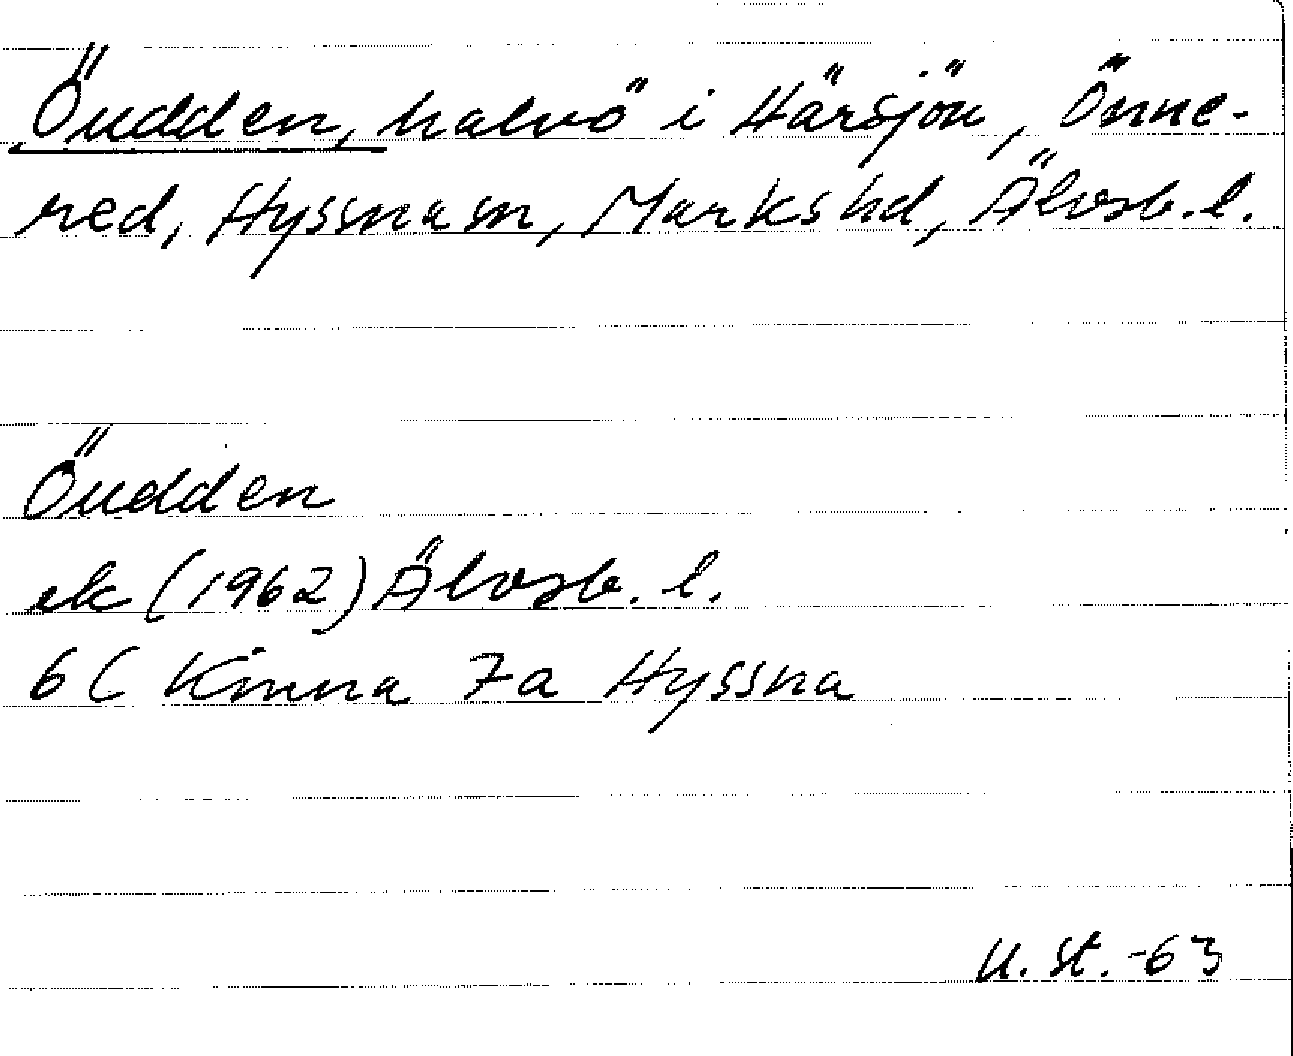 Öudden, halvö i Härsjön, Önne-
red, Hyssna sn, Marks hd, Älvsb. l.
Öudden
ek (1962) Älvsb. l.
6 C Kinna 7a Hyssna
U. St. -63